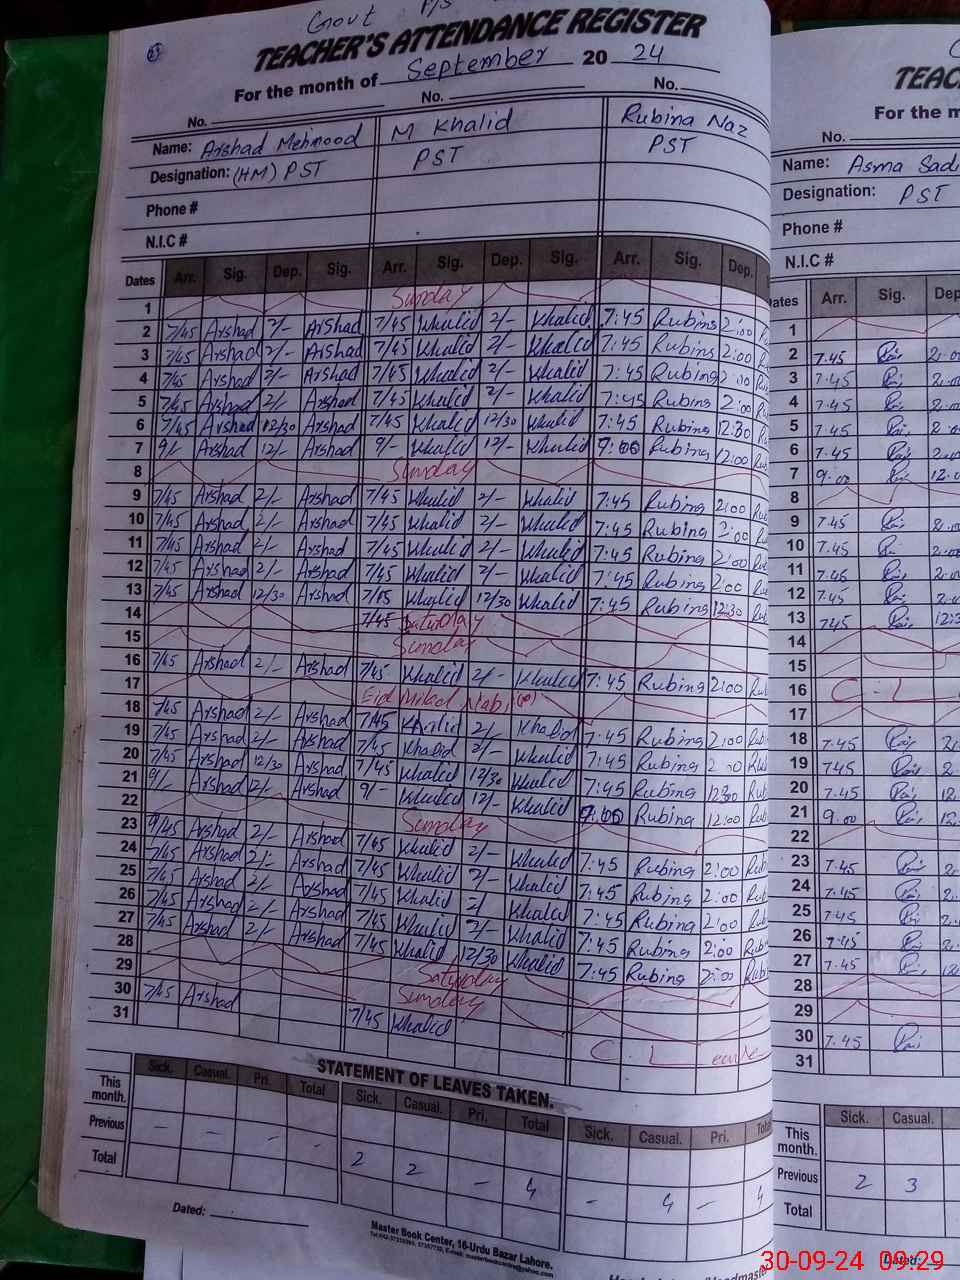 Govt P/S
TEACHER'S ATTENDANCE REGISTER
For the month of September 20 24
No. No. No.
Name: Arshad Mehmood M Khalid Rubina Naz
Designation: (HM) PST PST PST
Phone #
N.I.C #
Dates Arr. Sig. Dep. Sig. Arr. Sig. Dep. Sig. Arr. Sig. Dep.
1 Sunday
2 7/45 Arshad 2/- Arshad 7/45 Khalid 2/- Khalid 7:45 Rubina 2:00
3 7/45 Arshad 2/- Arshad 7/45 Khalid 2/- Khalid 7:45 Rubina 2:00
4 7/45 Arshad 2/- Arshad 7/45 Khalid 2/- Khalid 7:45 Rubina 2:00
5 7/45 Arshad 2/- Arshad 7/45 Khalid 2/- Khalid 7:45 Rubina 2:00
6 7/45 Arshad 12/30 Arshad 7/45 Khalid 12/30 Khalid 7:45 Rubina 12:30
7 9/- Arshad 12/- Arshad 9/- Khalid 12/- Khalid 9:00 Rubina 12:00
8 Sunday
9 7/45 Arshad 2/- Arshad 7/45 Khalid 2/- Khalid 7:45 Rubina 2:00
10 7/45 Arshad 2/- Arshad 7/45 Khalid 2/- Khalid 7:45 Rubina 2:00
11 7/45 Arshad 2/- Arshad 7/45 Khalid 2/- Khalid 7:45 Rubina 2:00
12 7/45 Arshad 2/- Arshad 7/45 Khalid 2/- Khalid 7:45 Rubina 2:00
13 7/45 Arshad 12/30 Arshad Khalid 12/30 Khalid 7:45 Rubina 12:30
14 7/45 Saturday
15 Sunday
16 7/45 Arshad 2/- Arshad 7/45 Khalid 2/- Khalid 7:45 Rubina 2:00
17 Eid Milad Nabi
18 7/45 Arshad 2/- Arshad 7/45 Khalid 2/- Khalid 7:45 Rubina 2:00
19 7/45 Arshad 2/- Arshad 7/45 Khalid 2/- Khalid 7:45 Rubina 2:00
20 7/45 Arshad 12/30 Arshad 7/45 Khalid 12/30 Khalid 7:45 Rubina 12:30
21 9/- Arshad 12/- Arshad 9/- Khalid 12/- Khalid 9:00 Rubina 12:00
22 Sunday
23 Arshad 2/- Arshad 7/45 Khalid 2/- Khalid 7:45 Rubina 2:00
24 7/45 Arshad 2/- Arshad 7/45 Khalid 2/- Khalid 7:45 Rubina 2:00
25 7/45 Arshad 2/- Arshad 7/45 Khalid 2/ Khalid 7:45 Rubina 2:00
26 7/45 Arshad 2/- Arshad 7/45 Khalid 2/- Khalid 7:45 Rubina 2:00
27 7/45 Arshad 2/- Arshad 7/45 Khalid 12/30 Khalid 7:45 Rubina 2:00
28 Saturday
29 Sunday
30 7/45 Arshad 7/45 Khalid C. Leave
31
STATEMENT OF LEAVES TAKEN.
Sick. Casual. Pri. Total Sick. Casual. Pri. Total Sick. Casual. Pri. Total
This month.
Previous - - - - 2 2 - 4 - 4 - 4
Total
Dated:
Master Book Center, 16-Urdu Bazar Lahore.
TEAC
For the m
No.
Name: Asma Sadi
Designation: PST
Phone #
N.I.C #
Dates Arr. Sig. Dep
1
2 7.45 2.00
3 7.45 2.00
4 7.45 2.00
5 7.45 2.00
6 7.45
7 9.00 12.0
8
9 7.45 2.0
10 7.45 2.00
11 2.0
12 7.45 2.0
13 745 12:3
14
15
16 C.L
17
18 7.45 2.
19 745 2.
20 7.45 12.
21 9.00 12.
22
23 7.45 2.
24 7.45 2.
25 7.45 2.
26 7.45 2.
27 7.45 12
28
29
30 7.45
31
Sick. Casual.
This month.
Previous 2 3
Total
Dated:
30-09-24 09:29